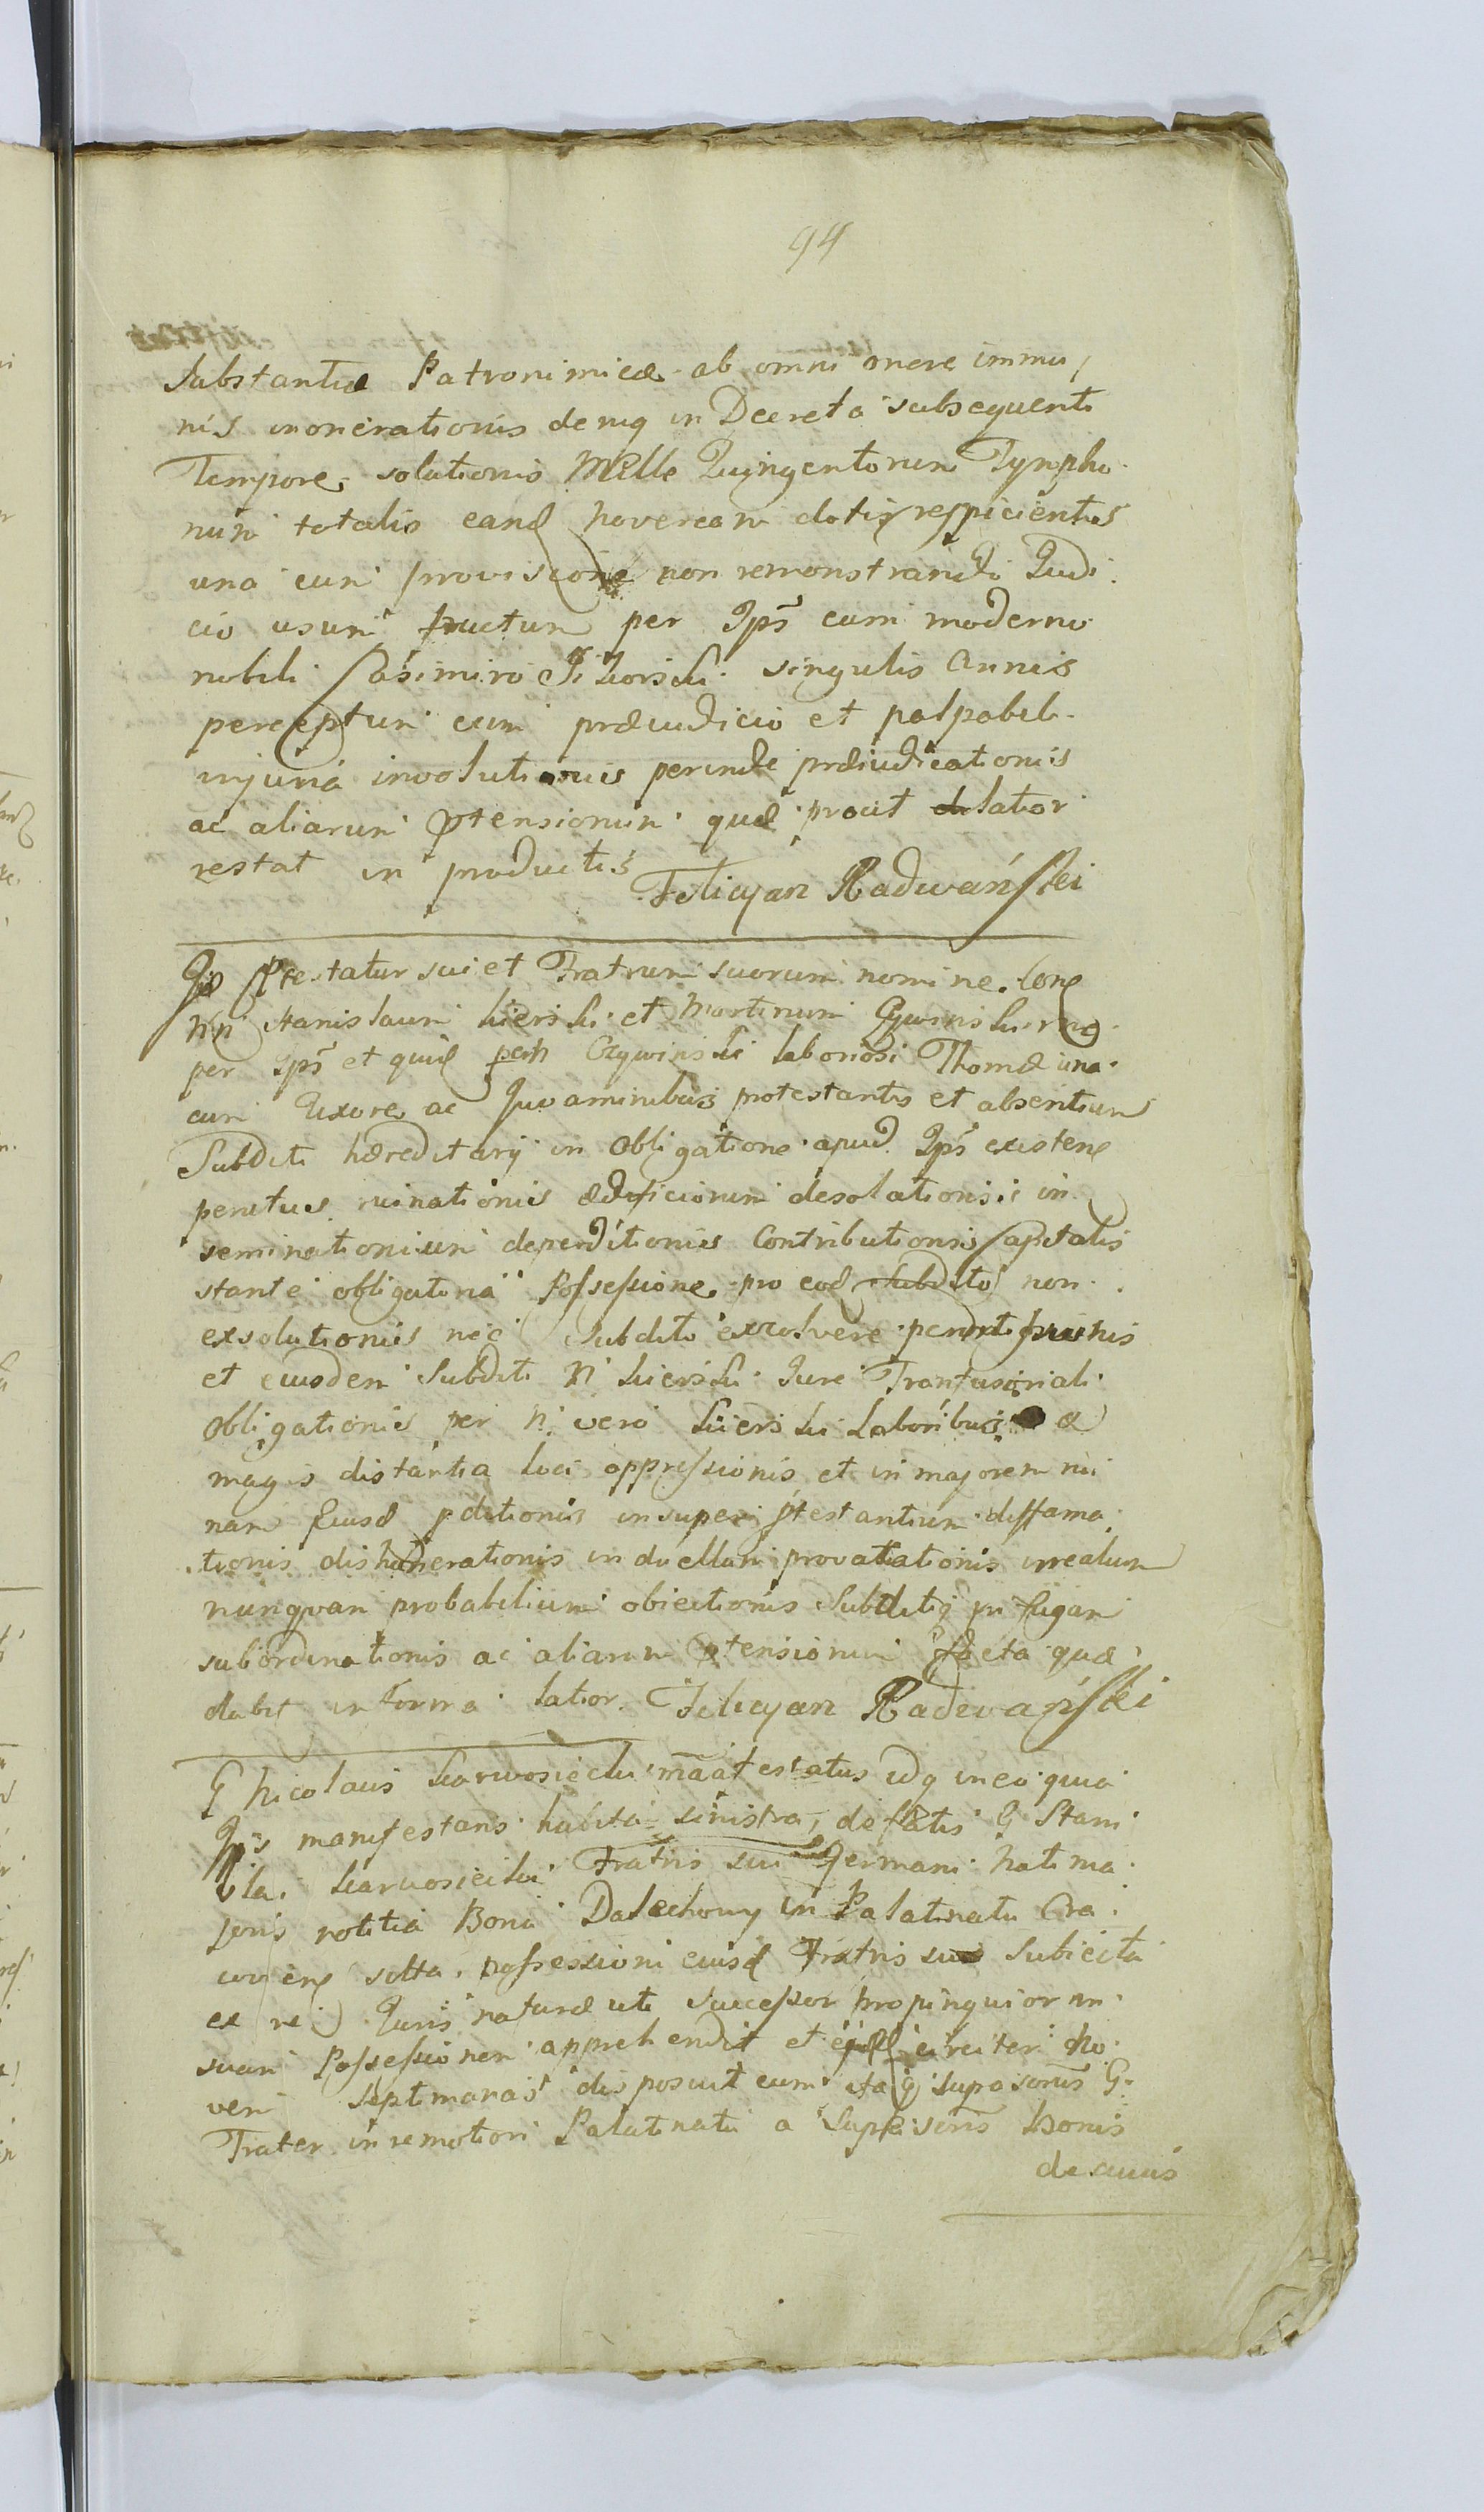 94
Substantiæ Patronimicæ ab omni onere immu,
nis inonerationis deniq in Decreto subsequenti
Tempore solutionis Mille Quingentorum Tympho
num totalis eand novercam dotis respicientis
una cum provisione non remonstrandi Judi
cio usum fructum per Ips cum moderno
nobili Casimiro singulis Annis
perceptum cum præiudicio et palpabili
injuria involutionis perinde præiudicationis
ac aliarum ptensionum quæ prout lator
restat in productis
Felicyan Radwański
Iid Ptestatur sui et Fratrum suorum nomine Cone
NN Stanislaum Kierski et Martinum
per Ips et quid laboriosi Thomæ una
cum Uxore ac Juvaminibus protestantis et absentium
Subditi hæreditarij in Obligatione apud Ips existen
penitus ruinationis ædificiorum desolationis in
seminationum deperditionis Contributionis Capitalis
stante obligatoria Possessione pro eod Subdito non
exsolutionis nec Subditi exsolvere
et eiusdem Subditi N Kierski Jure Transfusionali
Obligationis per N vero Kierski Laboribus
magis distantia loci oppressionis et in majorem rui
nam Eiusd pditionis insuper ptestantium diffama
tionis dishonerationis in duellum provocationis irrealium
nunquam probabilium obiectionis Subditiq in fugam
subordinationis ac aliarum ptensionum facta quæ
dabit in forma lator Felicyan Radwański
G Nicolaus Karwosiecki idq in eo quia
Ips manifestans habita sinistra, de fatis G Stani
slai Karwosiecki Fratris sui Germani Nati ma
joris notitia Bona Dalechowy in Palatinatu Cra
covien sitta possessioni eiusd Fratris sui Subiecta
ex vi Juris naturæ uti successor propinquior in
suam Possessionem apprehendit et circiter No
vem septimanas disposuit cum itaq G
Frater in remotiori Palatinatu a Bonis
de cuius